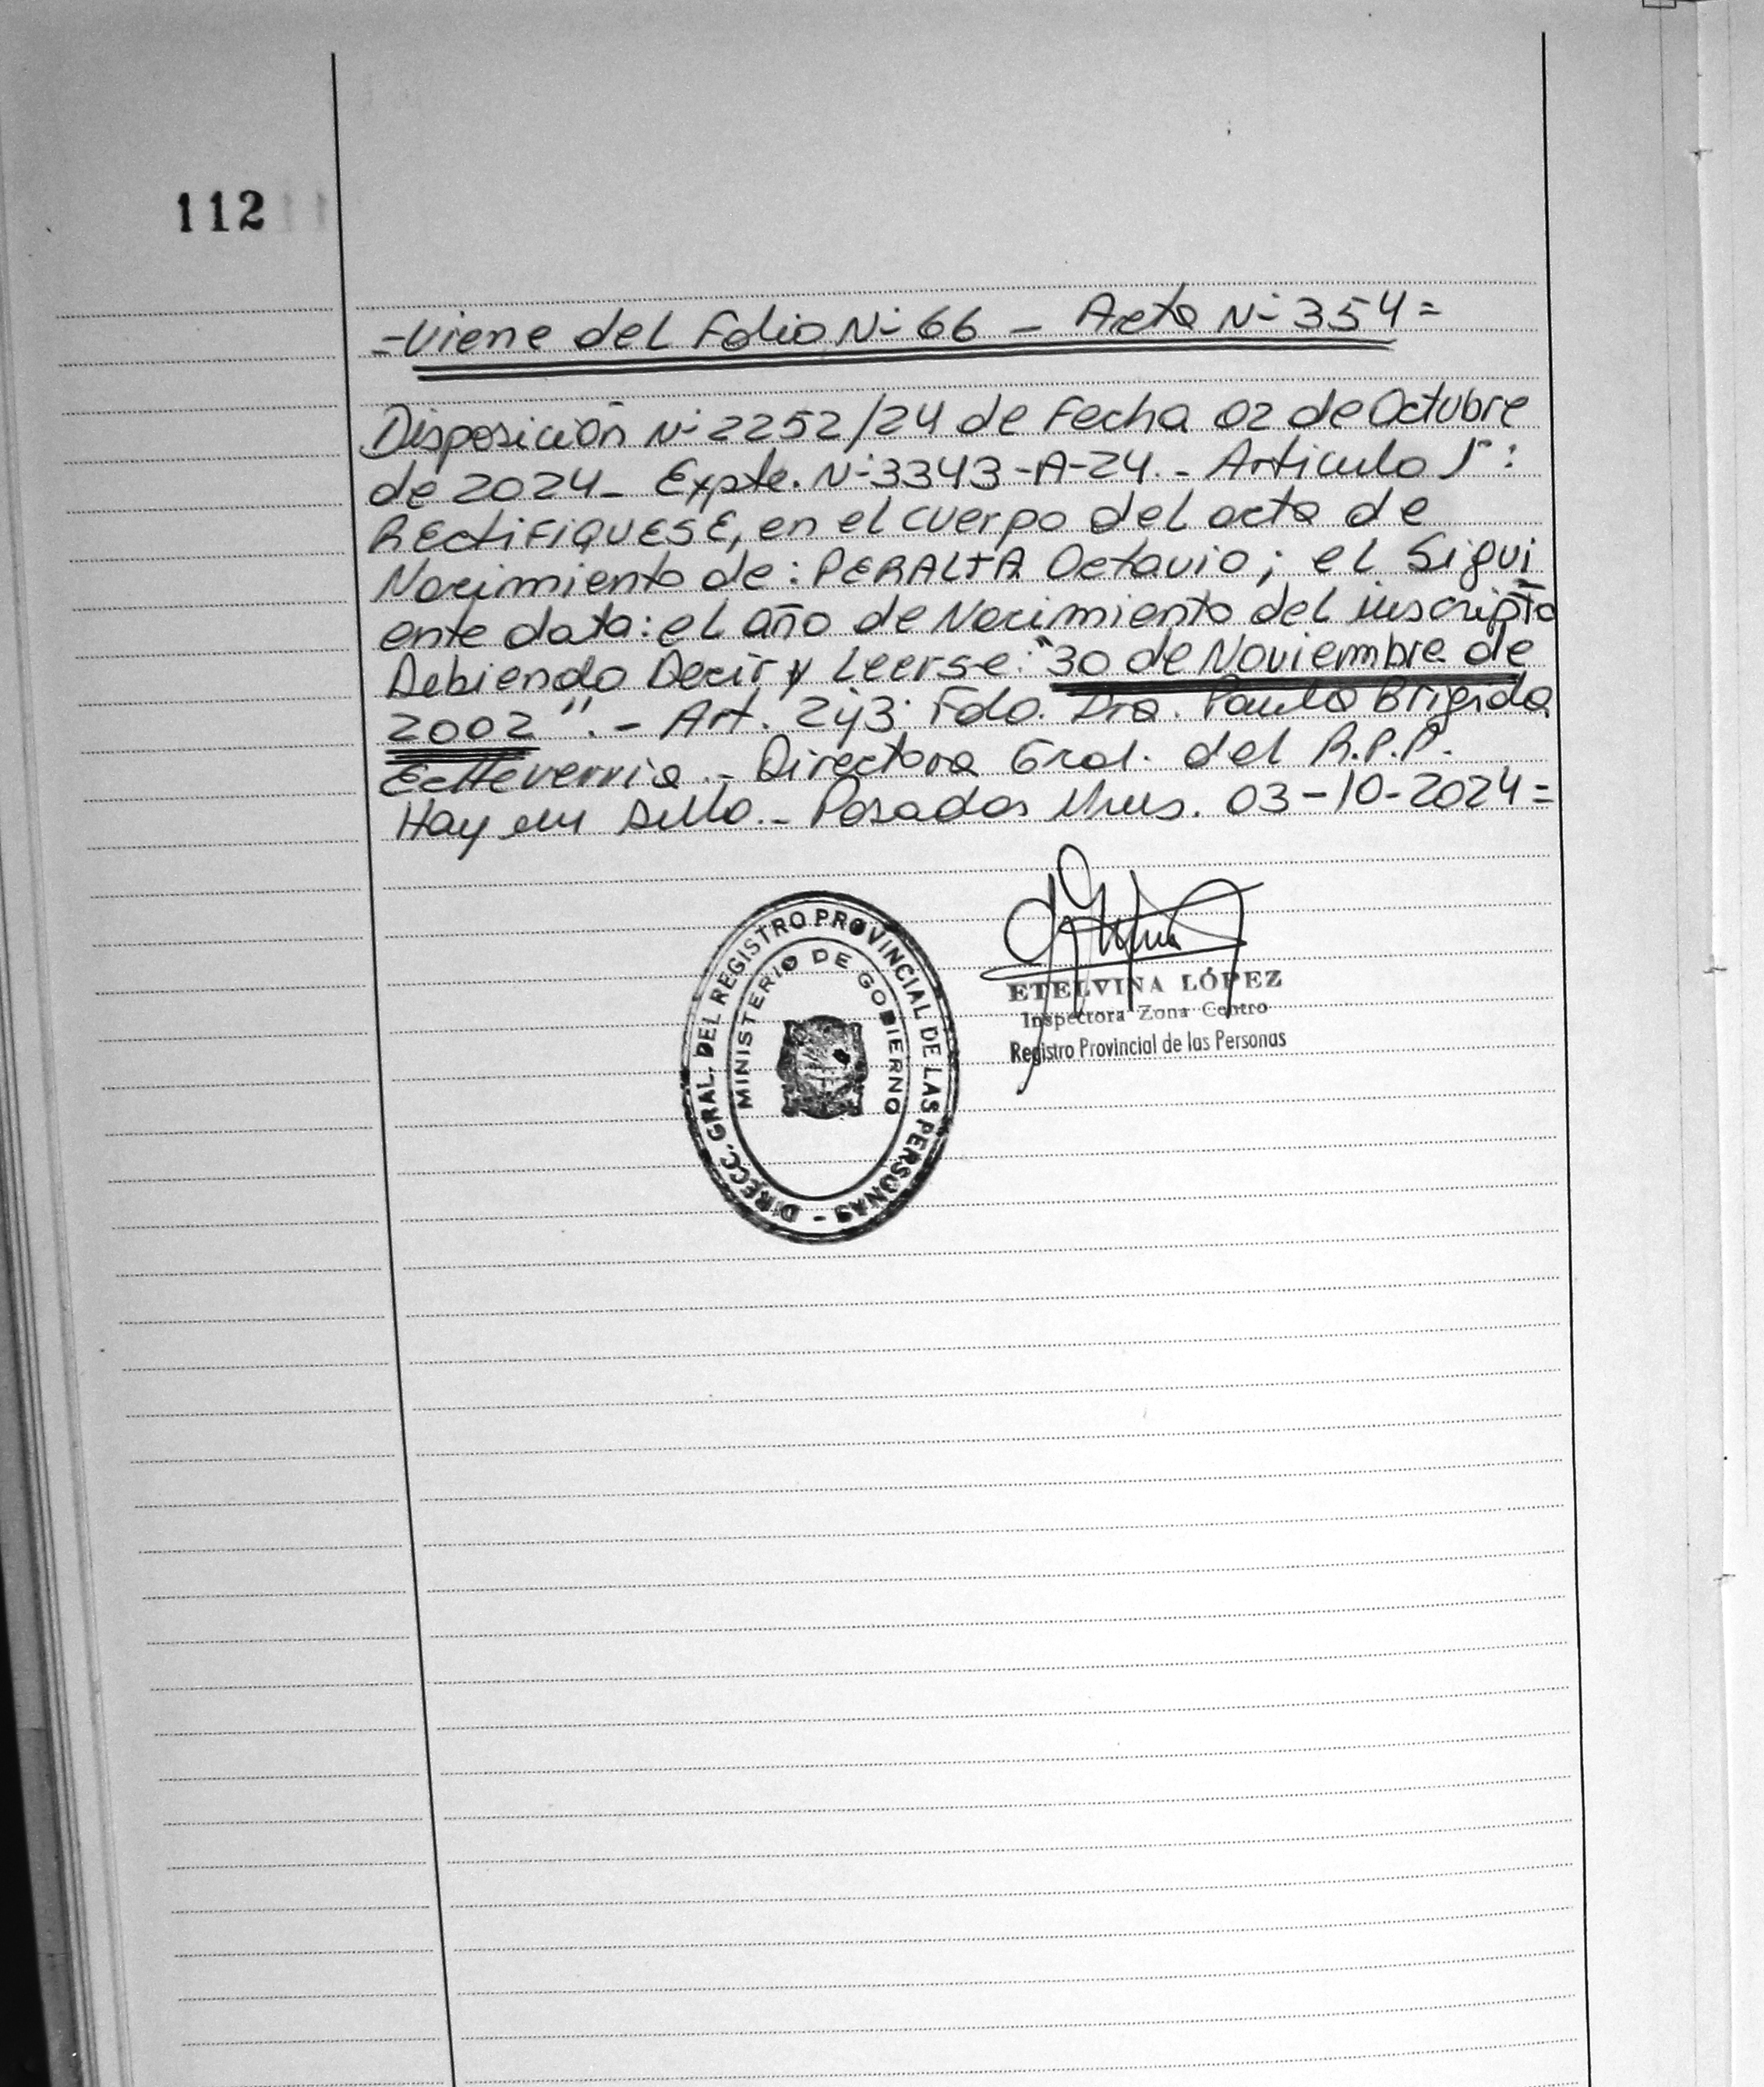 112
-Viene del Folio Nº 66 - Acta Nº 354=
Disposición Nº 2252/24 de Fecha 02 de Octubre
de 2024- Expte. Nº 3343-A-24.- Articulo 1º:
RECtiFIQUESE, en el cuerpo del acta de
Nacimiento de: PERALTA Octavio; el Sigui
ente data: el año de Nacimiento del inscripto
Debiendo Decir y Leerse: "30 de Noviembre de
2002".- Art. 2y3: Fdo. Dra. Paula Brigida
Echeverria.- Directora Gral. del R.P.P.
Hay un Sello.- Posadas Mnes. 03-10-2024=
DIRECC. GRAL. DEL REGISTRO PROVINCIAL DE LAS PERSONAS -
MINISTERIO DE GOBIERNO
ETELVINA LÓPEZ
Inspectora Zona Centro
Registro Provincial de las Personas